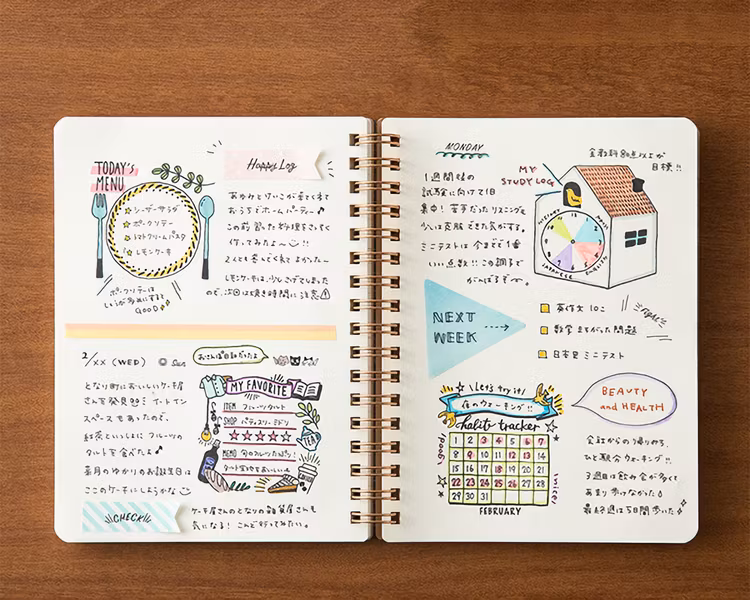 TODAY'S
MENU
シーザーサラダ
ポークソテー
トマトクリームパスタ
レモンケーキ
ポークソテーは
しょうが多めにすると
GOOD
Happy Log
おうちでホームパーティー♪
この前習った料理をさっそく
作ってみたよ〜!!
2人とも喜んでくれてよかった〜
レモンケーキは、少しこげてしまった
ので、次回は焼き時間に注意!
2/XX (WED)
Sun
となり町においしいケーキ屋
さんを発見!! イートイン
スペースもあったので、
紅茶といっしょに フルーツの
タルトを食べたよ♪
来月のゆかりのお誕生日は
ここのケーキにしようかな
MY FAVORITE
ITEM フルーツタルト
SHOP パティスリーミドリ
☆☆☆☆☆
MEMO 旬のフルーツたっぷり!
タルト生地もおいしい
TEA
CHECK
ケーキ屋さんのとなりの雑貨屋さんも
気になる! こんど行ってみたい。
MONDAY
1週間後の
試験に向けて1日
集中! 苦手だったリスニングも
少しは克服できた気がする。
ミニテストは 今までで1番
いい点数!! この調子で
がんばるぞ〜。
MY
STUDY LOG
全教科80点以上が
目標!!
HISTORY
MATH
ENGLISH
JAPANESE
NEXT
WEEK
英作文 10こ
数学 まちがった問題
日本史 ミニテスト
FIGHT!!
Let's try it!
夜のウォーキング!!
habit tracker
good!
nice!
1 2 3 4 5 6 7
8 9 10 11 12 13 14
15 16 17 18 19 20 21
22 23 24 25 26 27 28
29 30 31
FEBRUARY
BEAUTY
and HEALTH
会社からの帰り道、
ひと駅分ウォーキング!!
3週目は飲み会が多くて
あまり歩けなかった
最終週は5日間歩いた